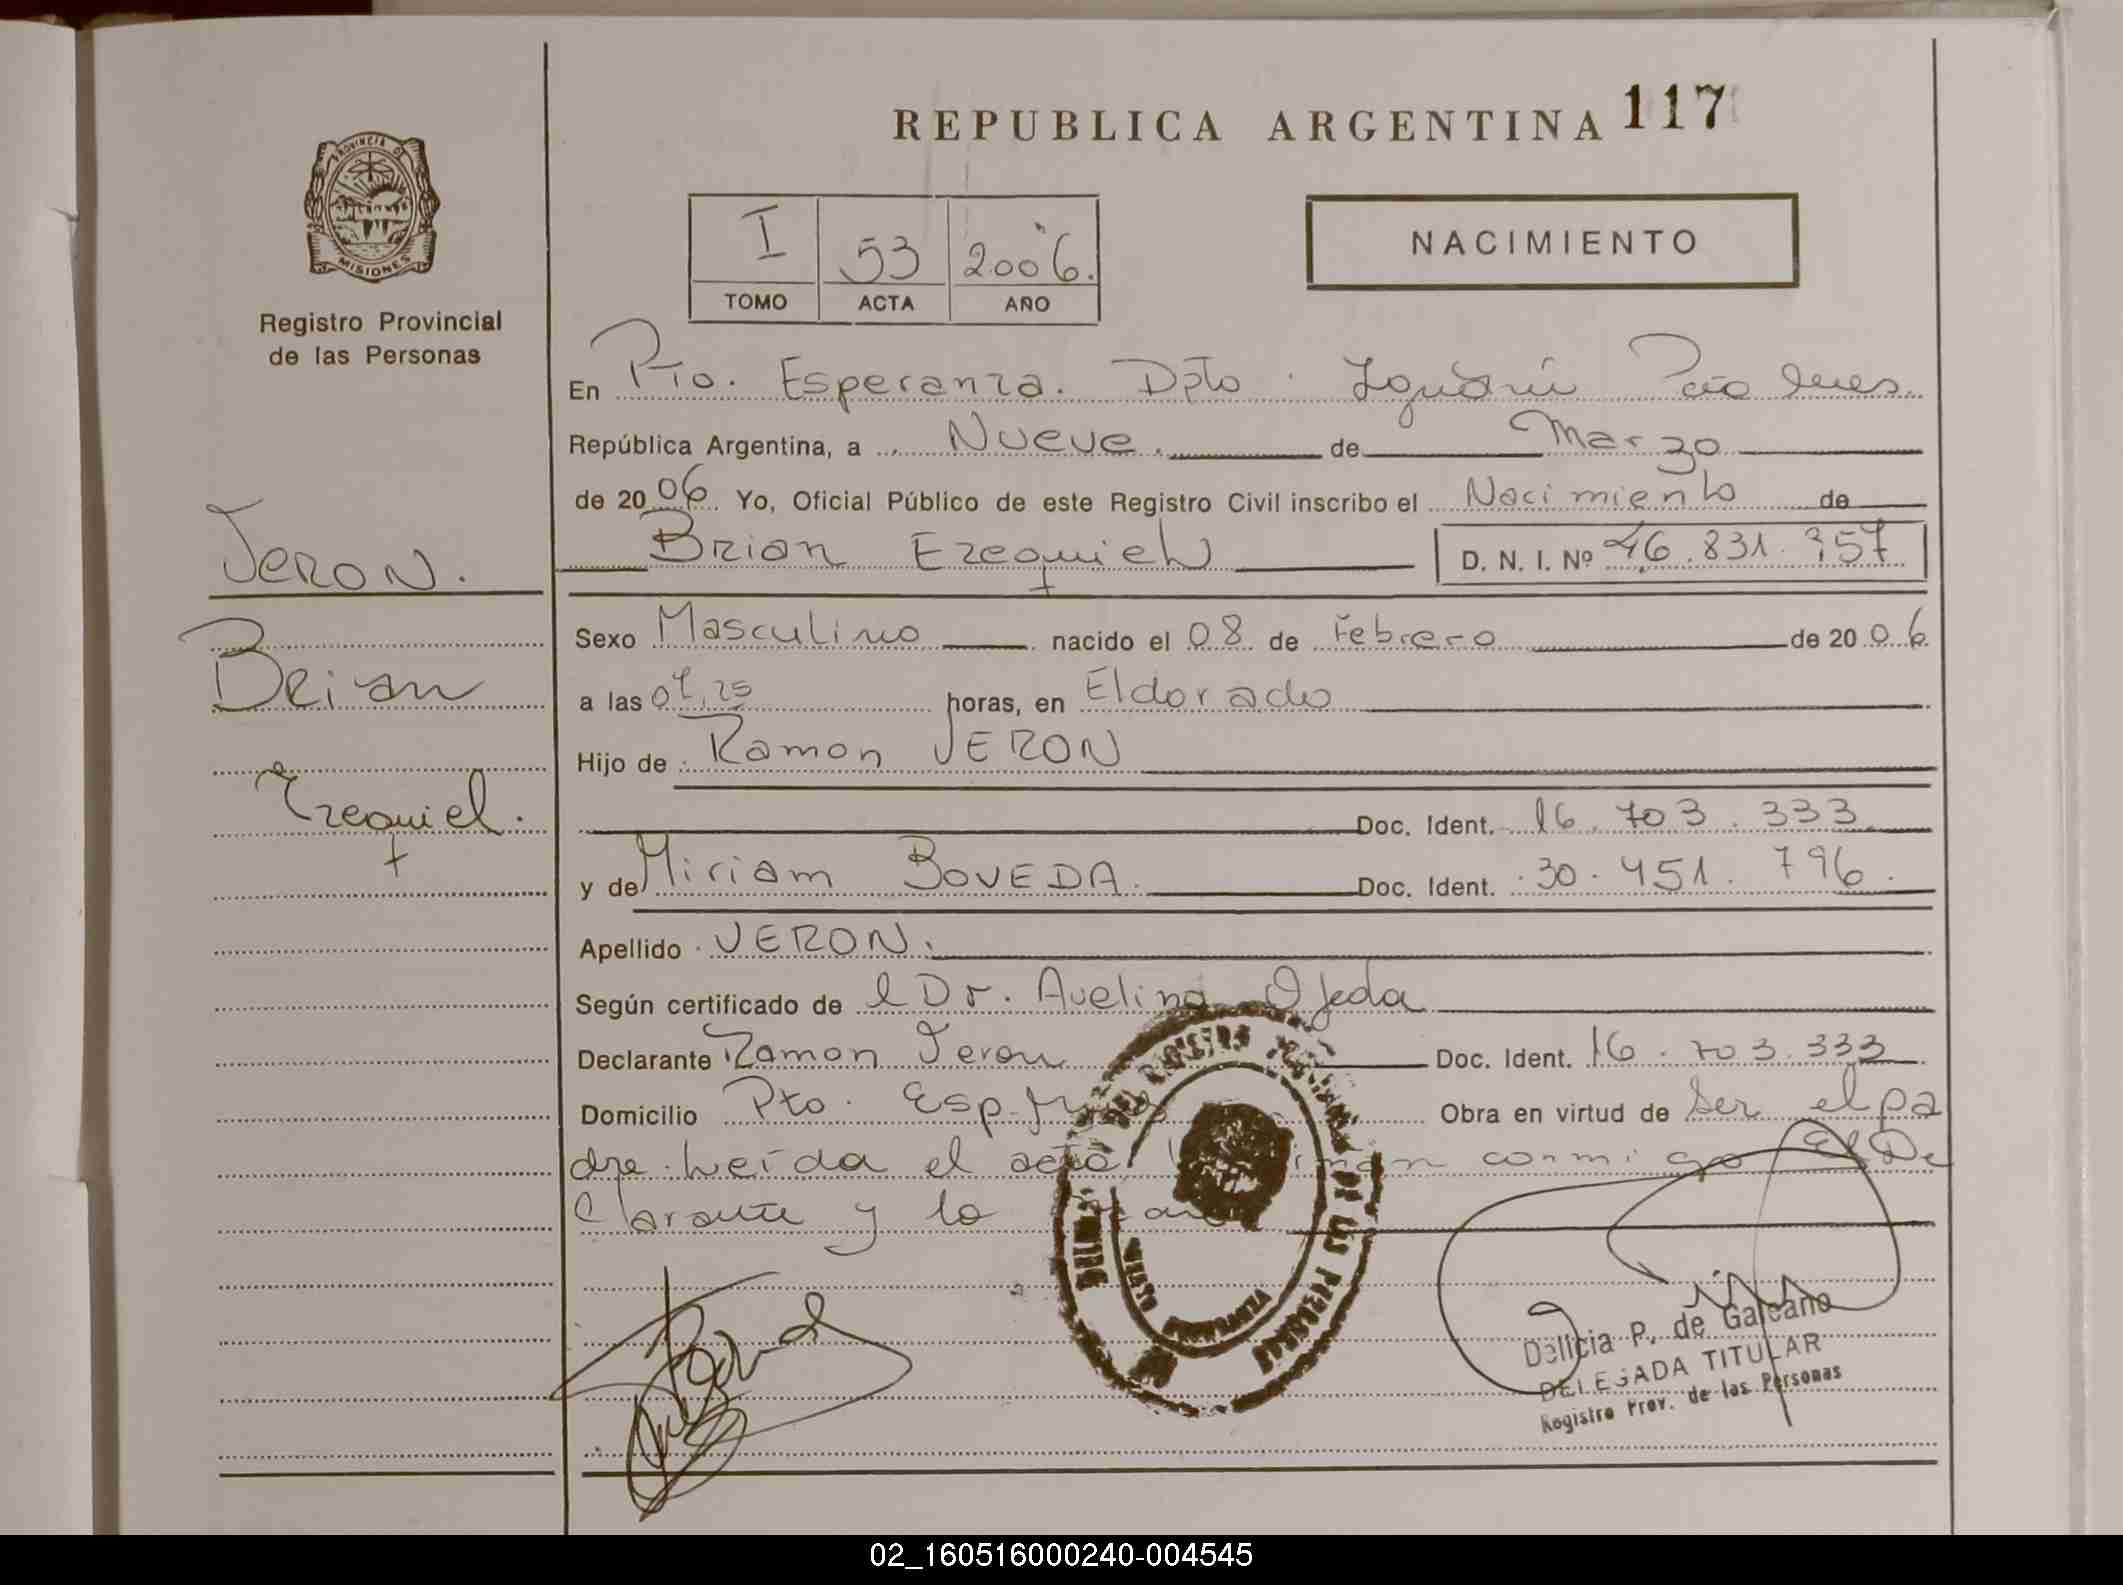 REPUBLICA ARGENTINA 117
PROVINCIA DE
MISIONES
Registro Provincial
de las Personas
I 53 2006.
TOMO ACTA AÑO
NACIMIENTO
En Pto. Esperanza. Dpto. Iguazú
República Argentina, a Nueve. de Marzo
de 2006 Yo, Oficial Público de este Registro Civil inscribo el Nacimiento de
Brian Ezequiel D. N. I. Nº 46.831.357
VERON.
Brian
Ezequiel.
Sexo Masculino nacido el 08 de Febrero de 2006
a las 07,25 horas, en Eldorado
Hijo de Ramon VERON
Doc. Ident. 16.703.333
y de Miriam BOVEDA. Doc. Ident. 30.451.796.
Apellido VERON.
Según certificado de l Dr. Avelino Ojeda
Declarante Ramon Veron Doc. Ident. 16.703.333
Domicilio Pto. Esp. Obra en virtud de Ser el pa
dre. Leída el acta conmigo El De
clarante y lo
DEL REGISTRO DE LAS PERSONAS
ESPERANZA
Delicia P. de Galeano
DELEGADA TITULAR
Registro Prov. de las Personas
02_160516000240-004545